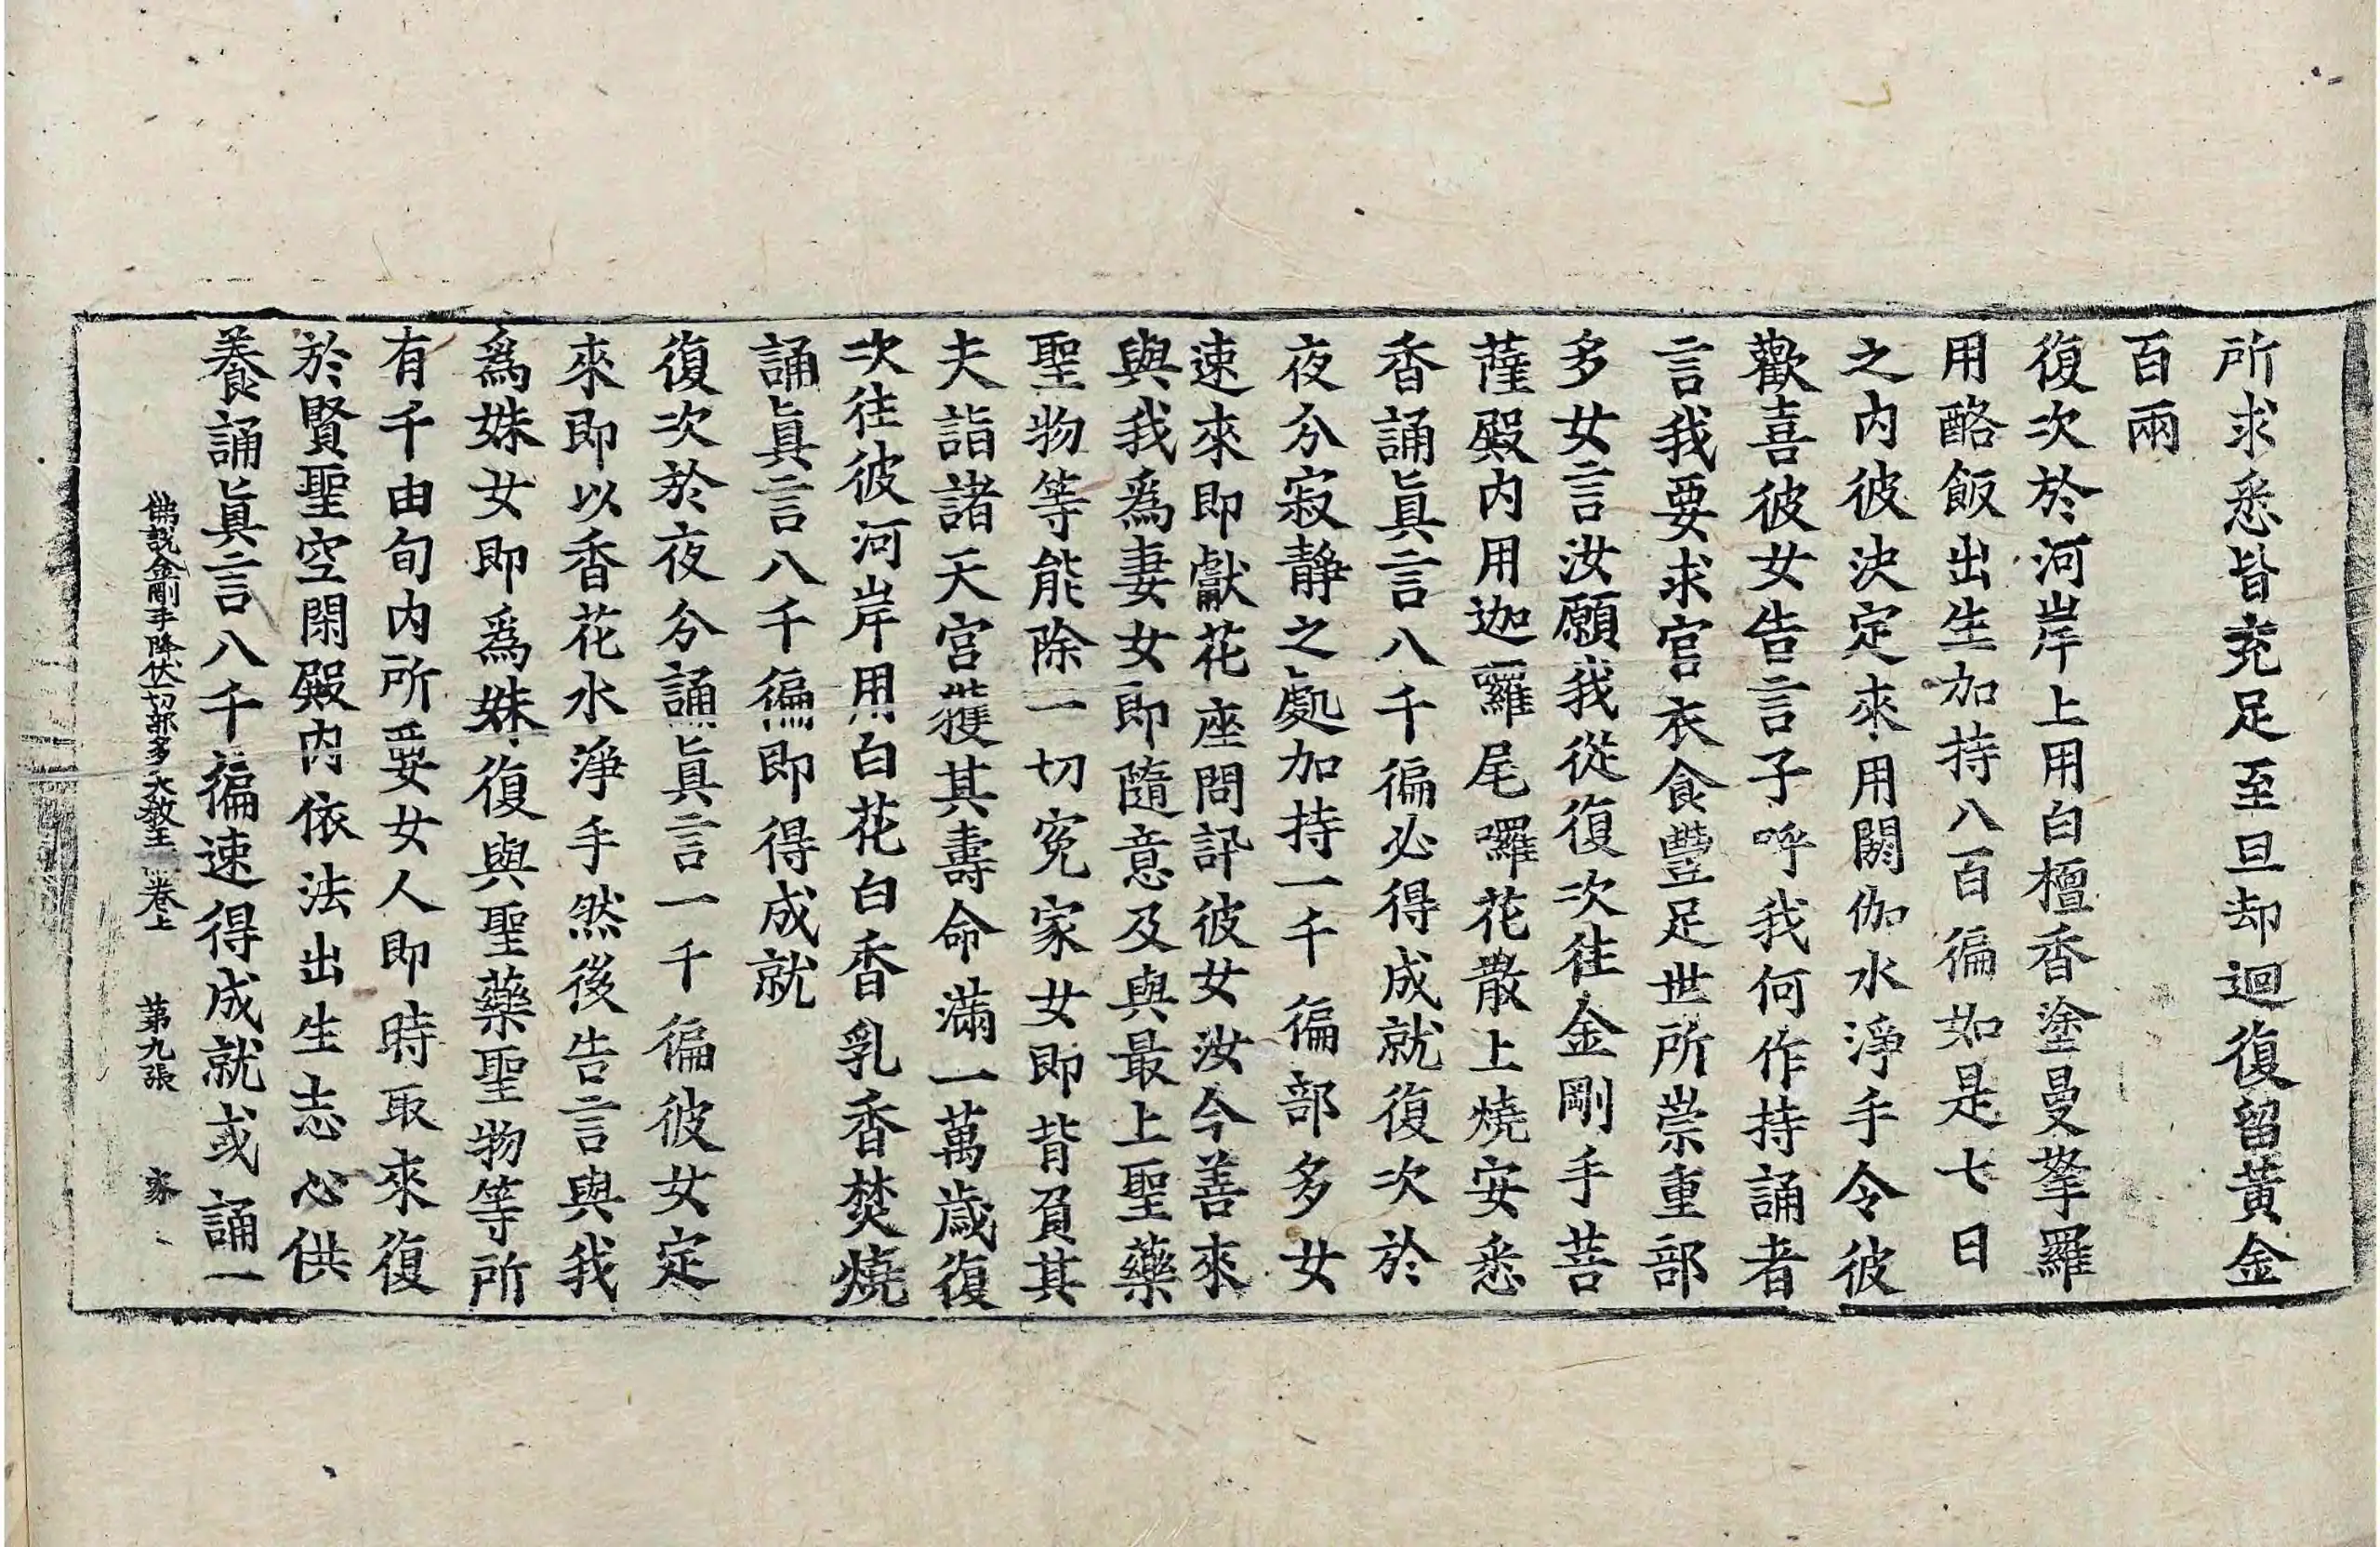 所求悉皆充足至旦却迴復留黃金
百兩
復次於河岸上用白檀香塗曼拏羅
用酪飯出生加持八百徧如是七日
之内彼決定來用閼伽水淨手令彼
歡喜彼女告言子呼我何作持誦者
言我要求官衣食豐足世所崇重部
多女言汝願我從復次往金剛手菩
薩殿内用迦囉尾囉花散上燒安悉
香誦眞言八千徧必得成就復次於
夜分寂靜之處加持一千徧部多女
速來即獻花座問訊彼女汝今善來
與我爲妻女即隨意及與最上聖藥
聖物等能除一切寃家女即背負其
夫詣諸天宮獲其壽命滿一萬歲復
次往彼河岸用白花白香乳香焚燒
誦眞言八千徧即得成就
復次於夜分誦眞言一千徧彼女定
來即以香花水淨手然後告言與我
爲姊女即爲姊復與聖藥聖物等所
有千由旬内所要女人即時取來復
於賢聖空閑殿内依法出生志心供
養誦眞言八千徧速得成就或誦一
佛說金剛手降伏一切部多大教王 卷上 第九張 家